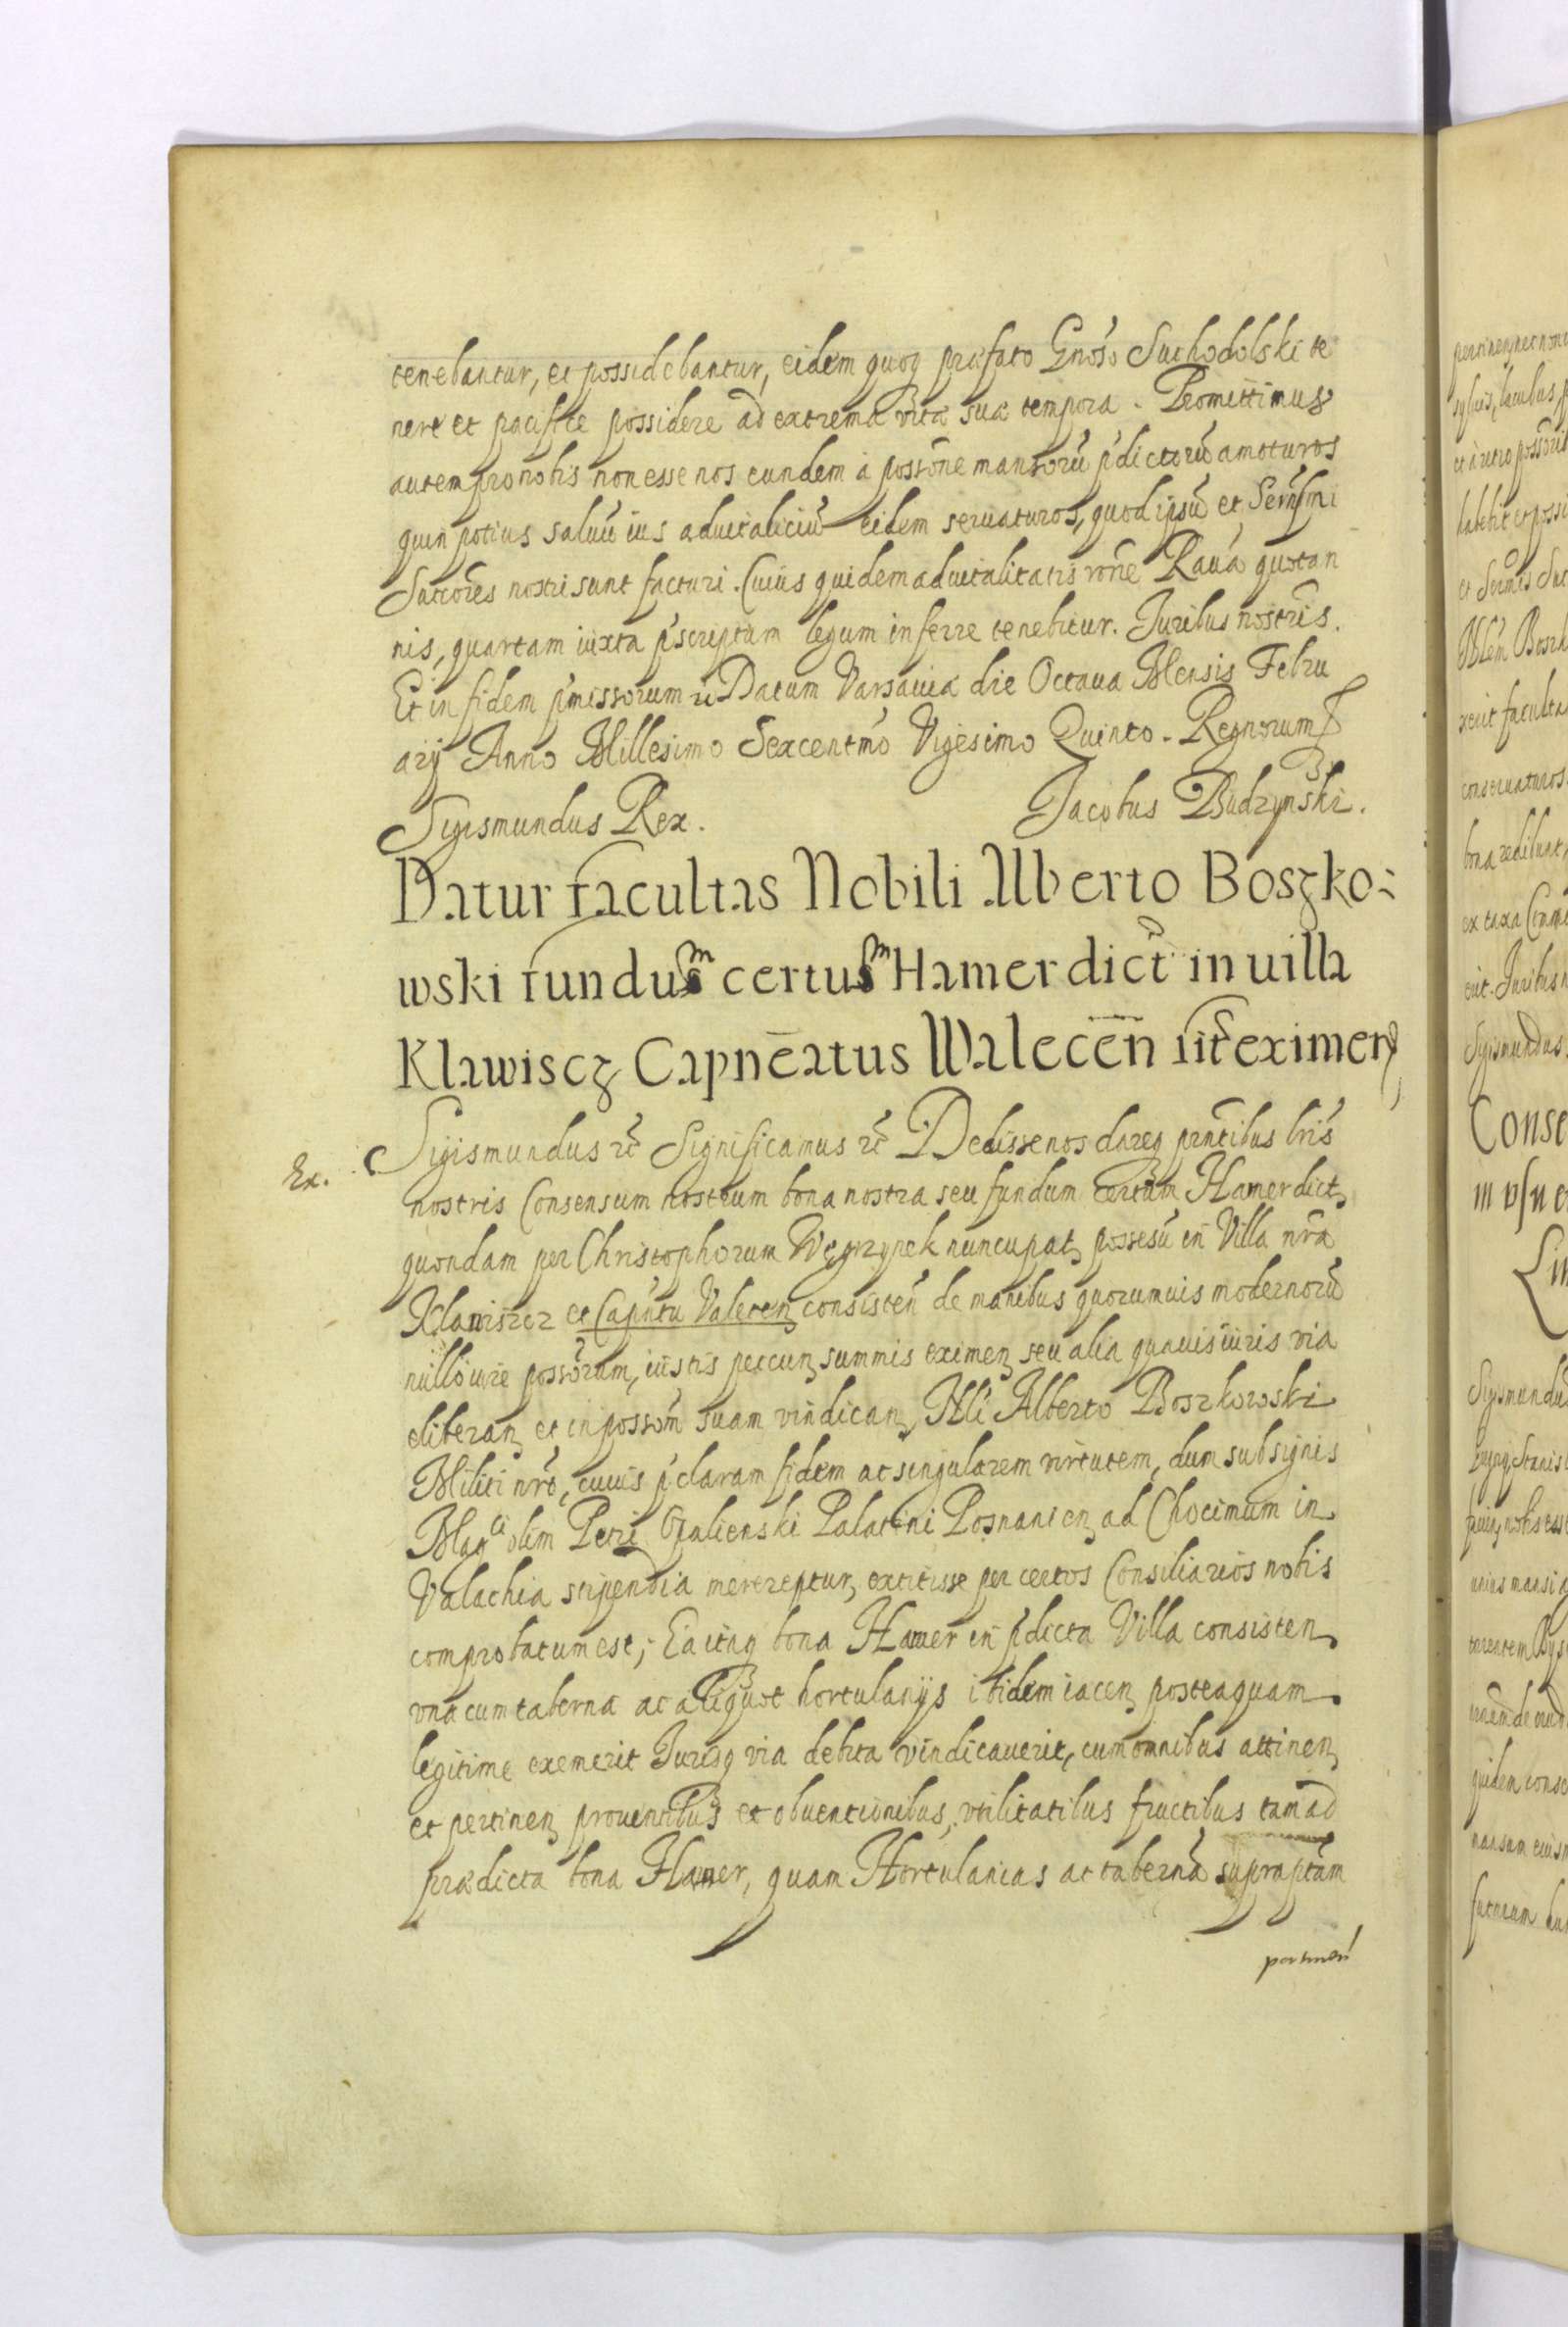 tenebantur, et possidebantur, eidem quoq præfato Gnoso Suchodolski te
nere et pacifice possidere ad extrema vitæ suæ tempora. Promittimus
autem pro nobis non esse nos eundem à possone mansorū p'dictorū amoturos
quin potius saluū ius aduitaliciū eidem seruaturos, quod ipsū et Sermi
Succores nostri sunt facturi. Cuius quidem aduitalitatis rōne Rauā quotan
nis, quartam iuxta p'scriptum legum inferre tenebitur. Juribus nostris.
Et in fidem p'missorum rc Datum Varsauiæ die Octaua Mensis Febru
arij Anno Millesimo Sexcentmo Vigesimo Quinto. Regnorum
Sigismundus Rex. Jacobus Budzynski.
Datur facultas Nobili Alberto Boszko:
wski fundum certum Hamer dict in uilla
Klawiscz Capnēatus Walecēn sit eximen
Ex. Sigismundus rc Significamus rc Dedisse nos dareq pr̄ntibus lris
nostris Consensum nostrum bona nostra seu fundum certum Hamer dict
quondam per Christophorum Węgrzynek nuncupat possesū in Villa nrā
Klawiszcz et Capntu Valecen consisten de manibus quorumuis modernorū
nullo iure possorum, iustis pecun summis eximen seu alia quauis iuris via
eliberan et in possom suam vindican, Nli Alberto Boszkowski
Militi nrō, cuius p'claram fidem ac singularem virtutem, dum sub signis
Magci olim Petri Opalienski Palatini Posnanien ad Chocimum in
Valachia stipendia merereptur, extitisse per certos Consiliarios nobis
comprobatum est; Ea itaq bona Hamer in p'dicta Villa consisten
vna cum taberna ac aliquot hortulanijs ibidem iacen posteaquam
legitime exemerit Jurisq via debita vindicauerit, cum omnibus attinen
et pertinen prouentibus et obuentionibus, vtilitatibus fructibus tam ad
prædicta bona Hamer, quam Hortulanias ac tabernā supraptam
pertinen